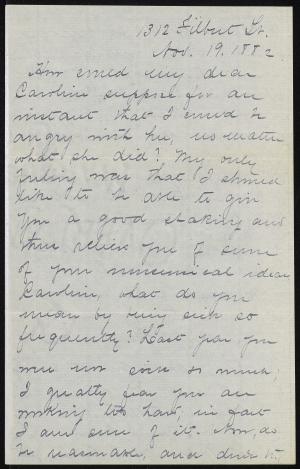 1312 Filbert St.
Nov. 19. 1882
How could my dear
Caroline suppose for an
instant that I could be
angry with her, no matter
what she did? My only
feeling was that I should
like to be able to give
you a good shaking and
thus relieve you of some
of your nonsensical ideas
Caroline, what do you
mean by being sick so
frequently? Last year you
were not sick so much;
I greatly fear you are
working too hard, in fact
I am sure of it. Now, do
be reasonable, and don't